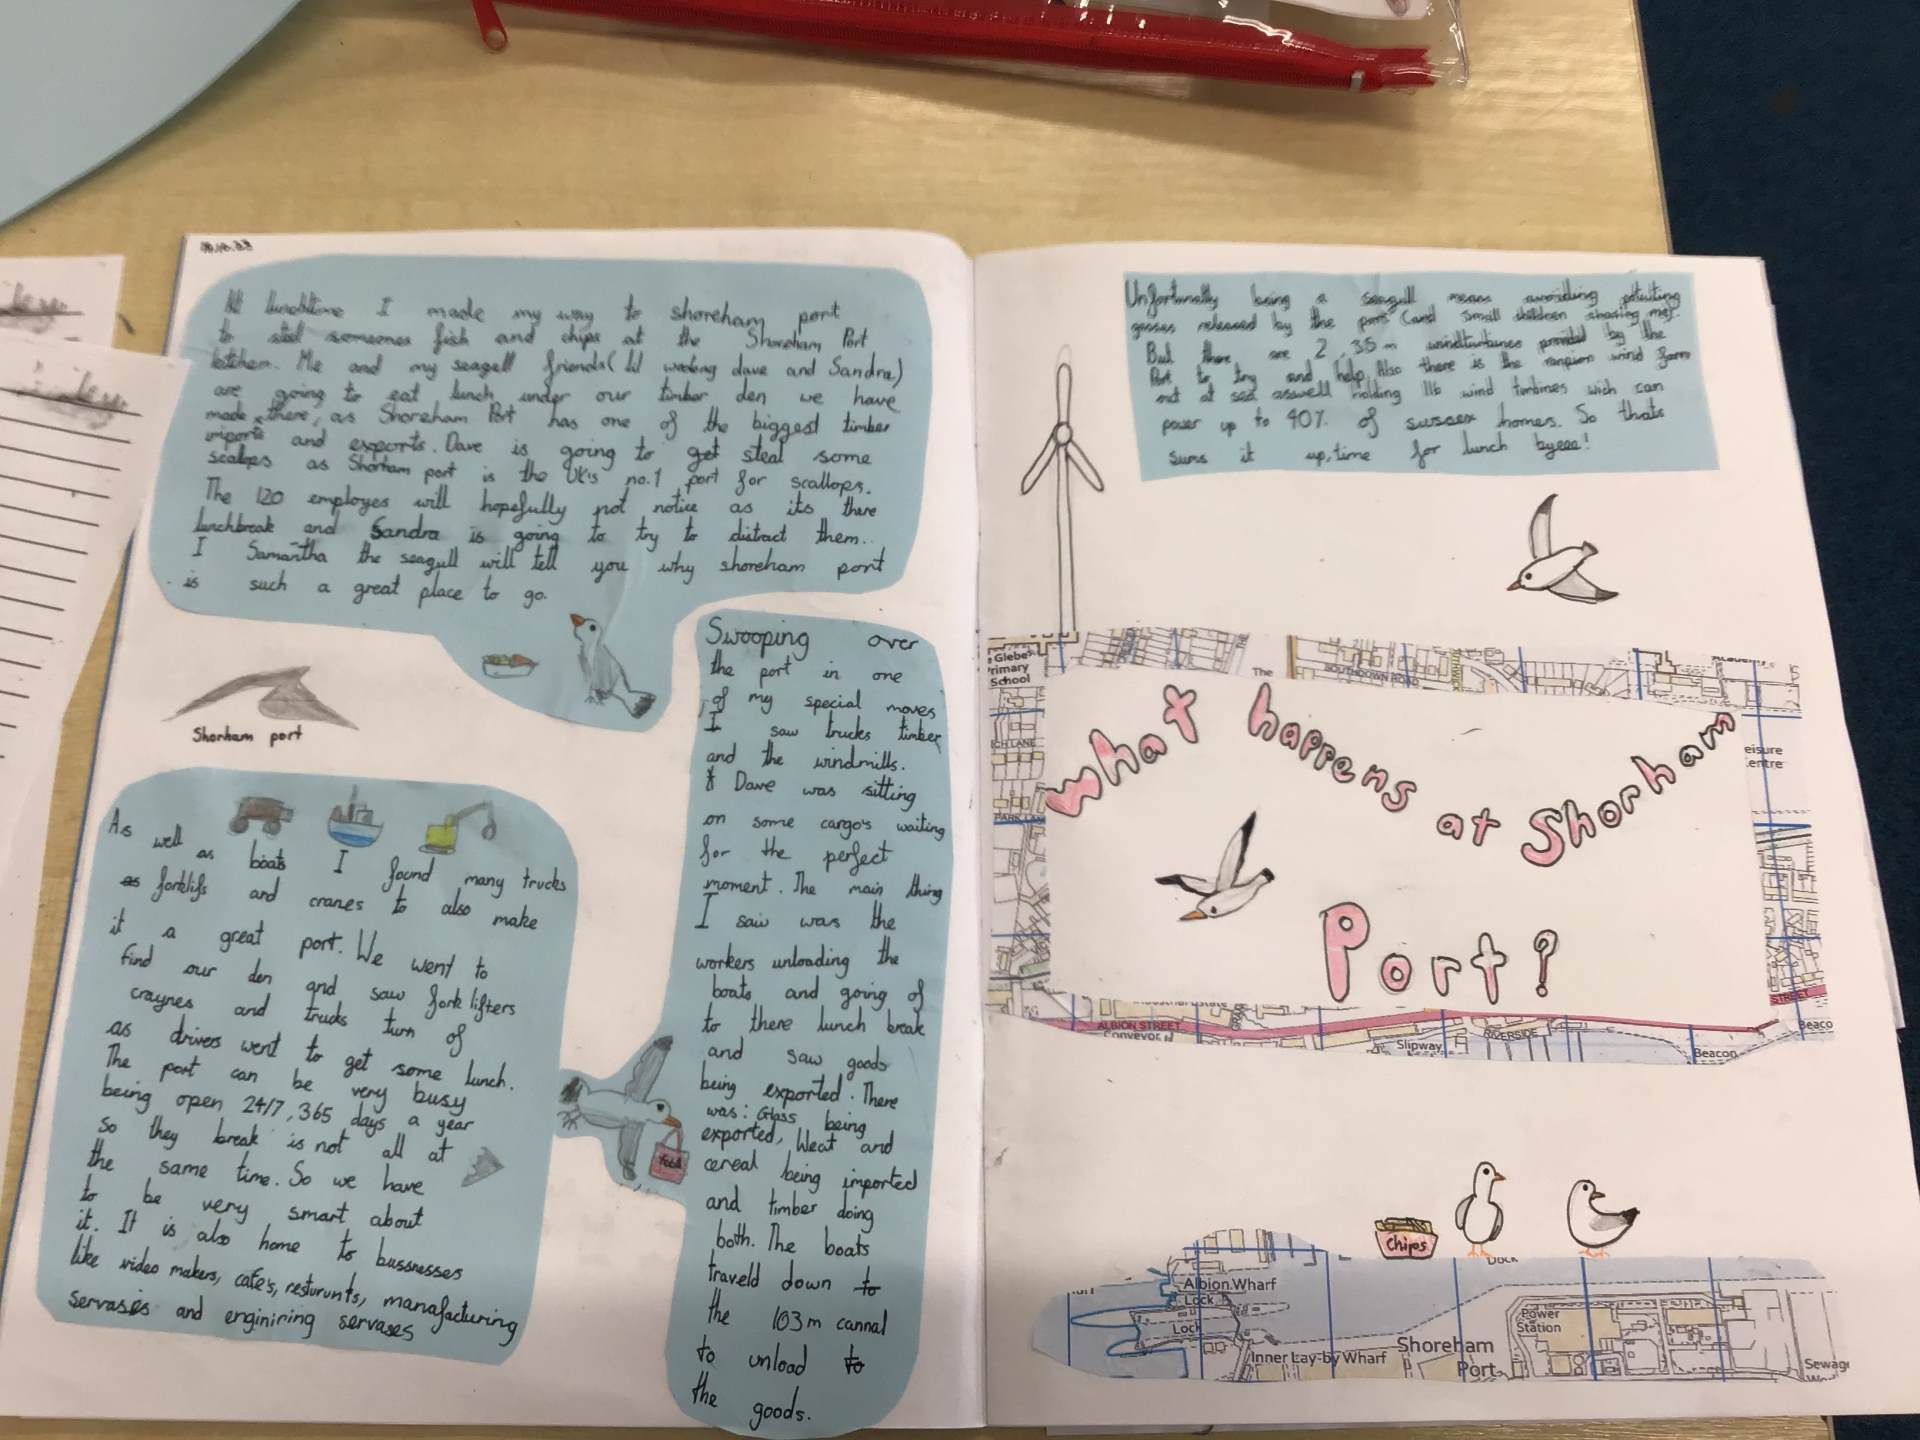 At lunchtime I made my way to shoreham port
to steal someones fish and chips at the Shoreham Port
kitchen. Me and my seagull friends ( dave and Sandra)
are going to eat lunch under our timber den we have
made there, as Shoreham Port has one of the biggest timber
imports and exports. Dave is going to get steal some
scalops as Shorham port is the UK's no.1 port for scallops.
The 120 employes will hopefully not notice as its there
lunchbreak and Sandra is going to try to distract them..
I Samantha the seagull will tell you why shoreham port
is such a great place to go.
Shorham port
As well as boats I found many trucks
as forklifs and cranes to also make
it a great port. We went to
find our den and saw fork lifters
craynes and trucks turn of
as drivers went to get some lunch.
The port can be very busy
being open 24/7, 365 days a year
so they break is not all at
the same time. So we have
to be very smart about
it. It is also home to bussnesses
like video makers, cafe's, resturunts, manafacturing
servases and enginiring servases
Swooping over
the port in one
of my special moves
I saw trucks timber
and the windmills.
Dave was sitting
on some cargo's waiting
for the perfect
moment. The main thing
I saw was the
workers unloading the
boats and going of
to there lunch break
and saw goods
being exported. There
was: Glass being
exported, Weat and
cereal being imported
and timber doing
both. The boats
traveld down to
the 103m cannal
to unload to
the goods.
food
Unfortunatly being a seagull means avoiding poluting
gasses released by the port (and small children chasing me).
But there are 2, 35m windturbines provided by the
Port to try and help. Also there is the rampion wind farm
out at sea aswell holding 116 wind turbines wich can
power up to 40% of sussex homes. So thats
sums it up, time for lunch byeee!
Glebe
Primary
School
The
SOUTHDOWN ROAD
eisure
Centre
PARK LAN
What happens at Shorham
Port?
STREET
ALBION STREET
Conveyor
Slipway
RIVERSIDE
Beacon
Beaco
Chips
Albion Wharf
Lock
Lock
Inner Lay-by Wharf
Shoreham
Port
Power
Station
Sewag